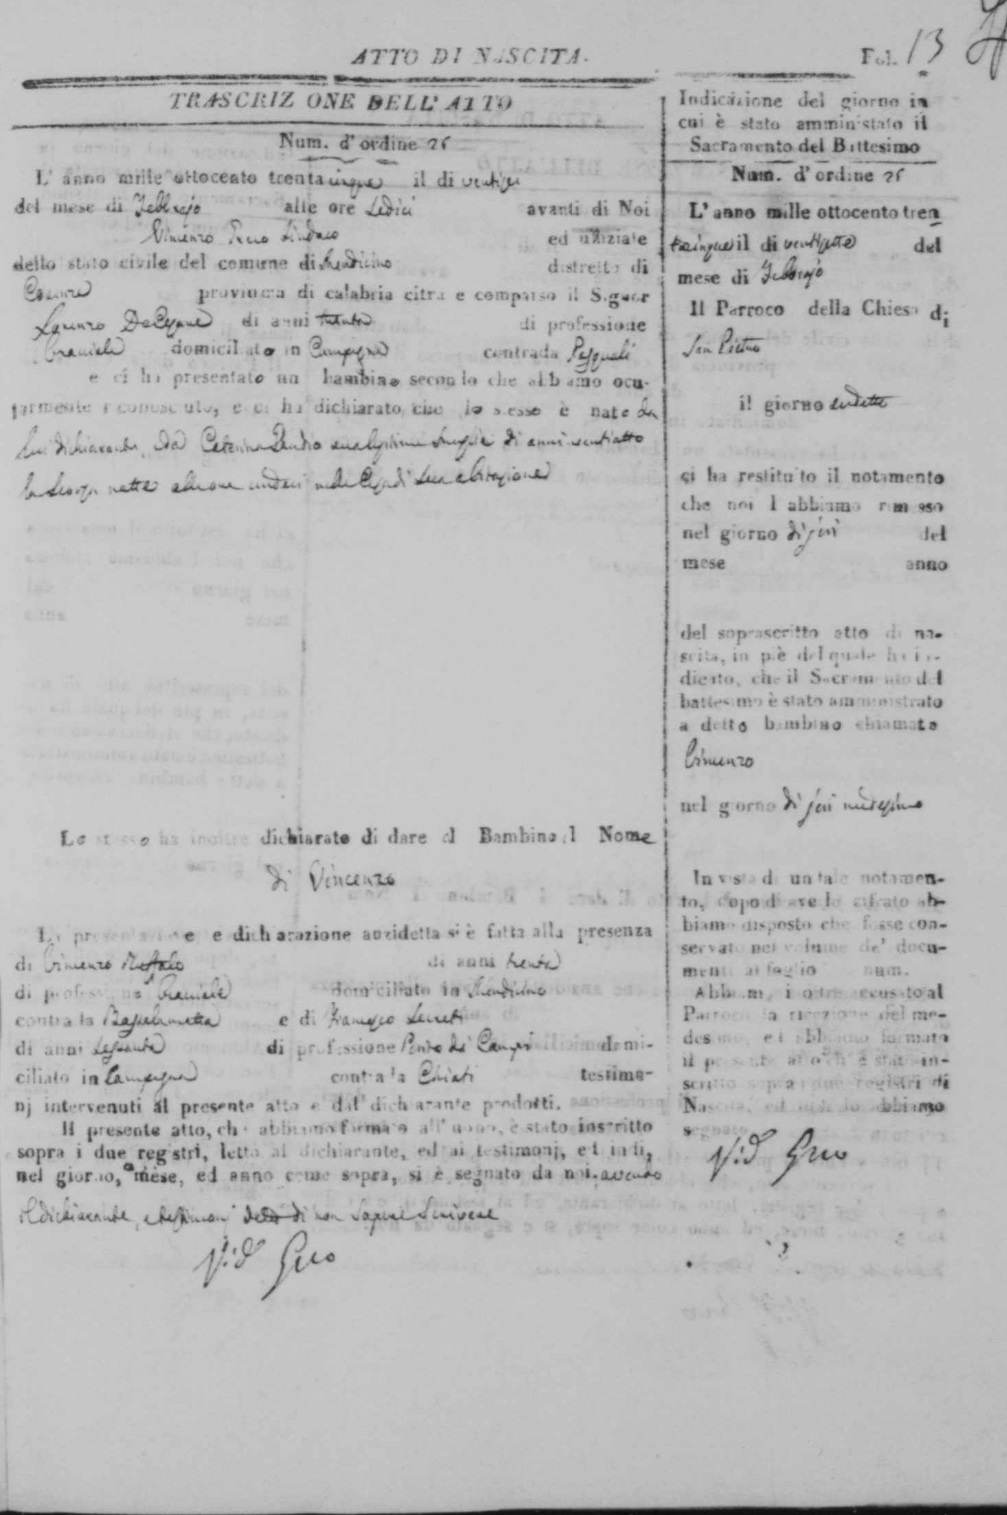 ATTO DI NASCITA.
Fol. 13
TRASCRIZ ONE DELL' ATTO
Num. d' ordine 26
L' anno mille ottocento trenta cinque il di
del mese di Febbrajo alle ore sedici avanti di Noi
Vincenzo Sindaco ed uffiziale
dello stato civile del comune di Mendicino distretto di
Cosenza provincia di calabria citra e comparso il Signor
Lorenzo di anni trenta di professione
Bracciale domiciliato in Campagna contrada Pasquali
e ci ha presentato un bambino secondo che abbiamo ocu-
larmente riconosciuto, e ci ha dichiarato che lo stesso è nato da
lui dichiarante, da Caterina sua legittima moglie di anni ventiotto
la scorsa notte alle ore undeci nella Casa di sua abitazione
Lo stesso ha inoltre dichiarato di dare al Bambino il Nome
di Vincenzo
La presentazione e dich arazione anzidetta si è fatta alla presenza
di Vincenzo di anni trenta
di professione Bracciale domiciliato in Mendicino
contrada e di Francesco
di anni sessanta di professione di Campi domi-
ciliato in Campagna contrada Chiati testimo-
nj intervenuti al presente atto e dal dich arante prodotti.
Il presente atto, che abbiamo formato all' uopo, è stato inscritto
sopra i due registri, letto al dichiarante, ed ai testimonj, ed indi,
nel giorno, mese, ed anno come sopra, si è segnato da noi avendo
il dichiarante, e testimoni detto di non sapere scrivere
Indicazione del giorno in
cui è stato amministato il
Sacramento del Battesimo
Num. d' ordine 26
L' anno mille ottocento tren
tacinque il di del
mese di Febbrajo
Il Parroco della Chiesa di
San Pietro
il giorno sudetto
ci ha restituito il notamento
che noi l abbiamo rimesso
nel giorno di jeri del
mese anno
del soprascritto atto di na-
scita, in piè del quale ha in-
dicato, che il Sacramento del
battesimo è stato amministrato
a detto bambino chiamato
Vincenzo
nel giorno di jeri medesimo
In vista di un tale notamen-
to, dopo di averlo cifrato ab-
biamo disposto che fosse con-
servato nel volume de' docu-
menti al foglio num.
Abbiamo inoltre accusato al
Parroco la ricezione del me-
desimo, ed abbiamo formato
il presente atto ch' è stato in-
scritto sopra i due registri di
Nascita, ed indi lo abbiamo
segnato